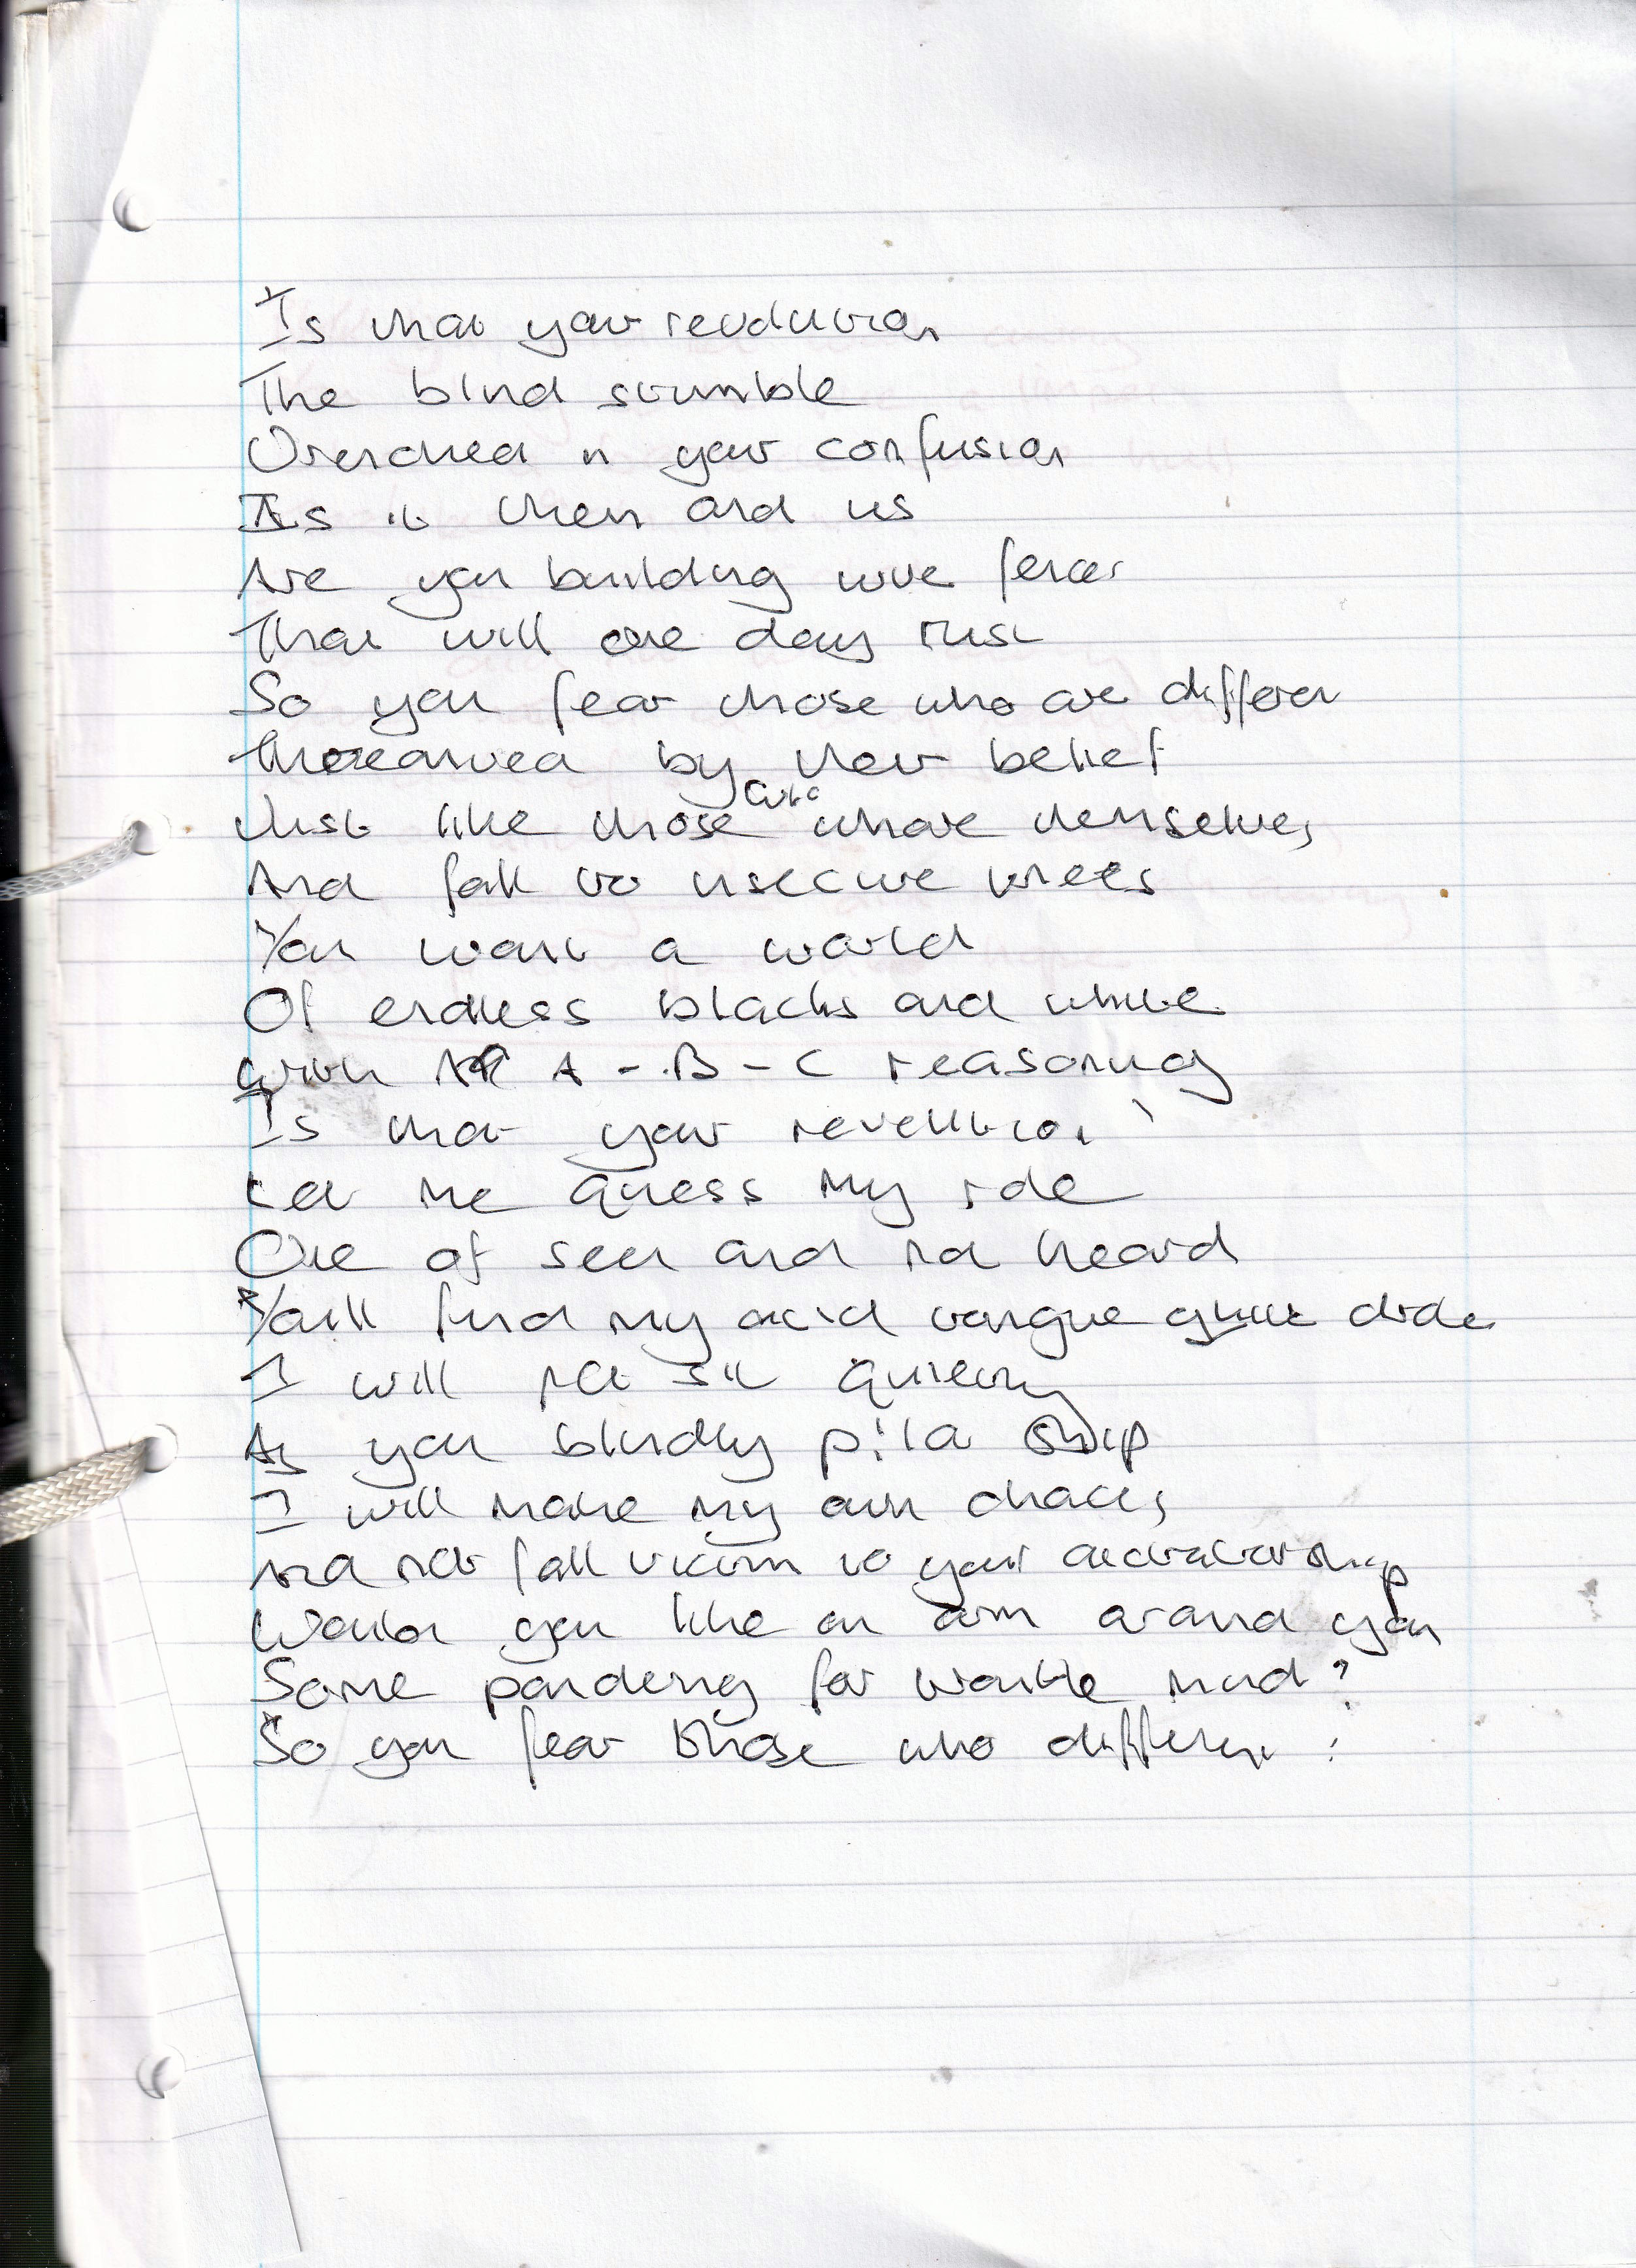 Is that your revolution
The blind stumble
Drenched in your confusion
Is it them and us
Are you building wire fences
That will one day rust
So you fear those who are different
Threatened by their belief
Just like those who
And fall to insecure knees
You want a world
Of endless blacks and white
With A-B-C reasoning
Is that your revelution
Let me guess my role
One of seen and not heard
You'll find my acid tongue quite
I will not sit quietly
As you blindly pilot ship
I will make my own choices
And not fall victim to your dictatorship
Would you like an arm around you
Some pandering for mind?
So you fear those who different